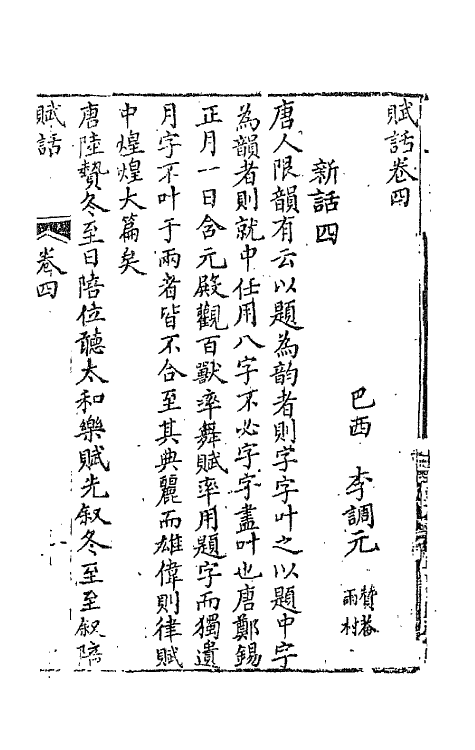 賦話卷四
巴西 李調元 贊菴
雨村
新話四
唐人限韻有云以題為韵者則字字叶之以題中字
為韻者則就中任用八字不必字字盡叶也唐鄭錫
正月一日含元殿觀百獸率舞賦率用題字而獨遺
月字不叶于兩者皆不合至其典麗而雄偉則律賦
中煌煌大篇矣
唐陸贄冬至日陪位聽太和樂賦先叙冬至至叙陪
賦話 卷四 一